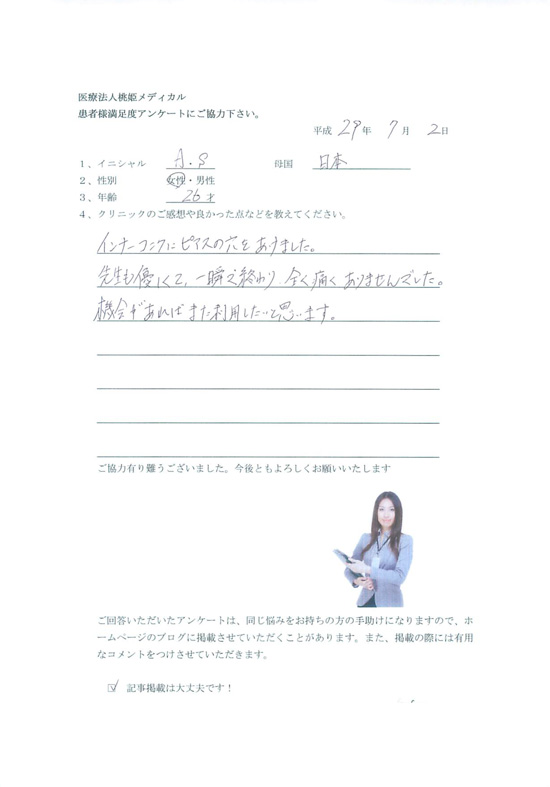 医療法人桃姫メディカル
患者様満足度アンケートにご協力下さい。
平成 29年 7月 2日
1、イニシャル A.S 母国 日本
2、性別 女性・男性
3、年齢 26才
4、クリニックのご感想や良かった点などを教えてください。
インナーコンクにピアスの穴をあけました。
先生も優しくて、一瞬で終わり全く痛くありませんでした。
機会があればまた利用したいと思います。
ご協力有り難うございました。今後ともよろしくお願いいたします
ご回答いただいたアンケートは、同じ悩みをお持ちの方の手助けになりますので、ホ
ームページのブログに掲載させていただくことがあります。また、掲載の際には有用
なコメントをつけさせていただきます。
☑ 記事掲載は大丈夫です！